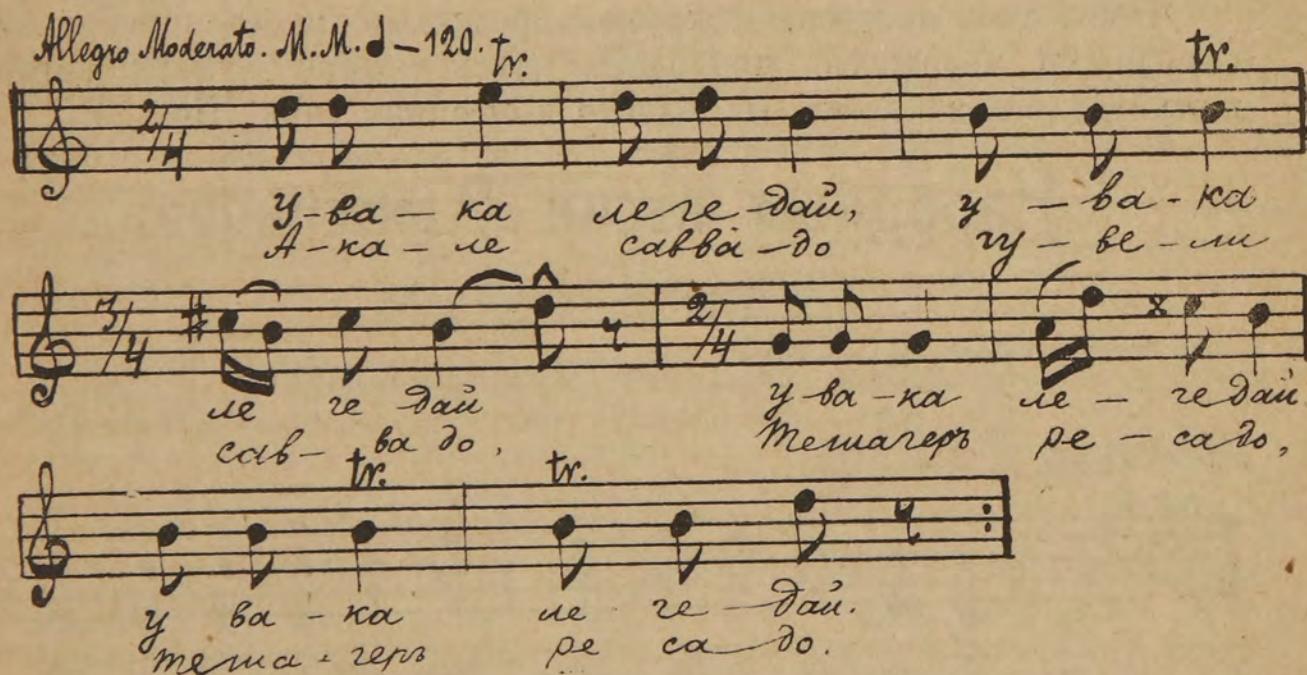 Allegro Moderato. M.M. ♩ – 120. tr. tr.
2/4
У-ва – ка леге-дай, у – ва - ка
А-ка – ле савва-до гу – ве – ли
3/4 2/4
ле ге дай у-ва-ка ле – гедай
сав – ва до, тешагеръ ре – садо,
tr. tr.
у ва – ка ле ге – дай.
теша - геръ ре са до.